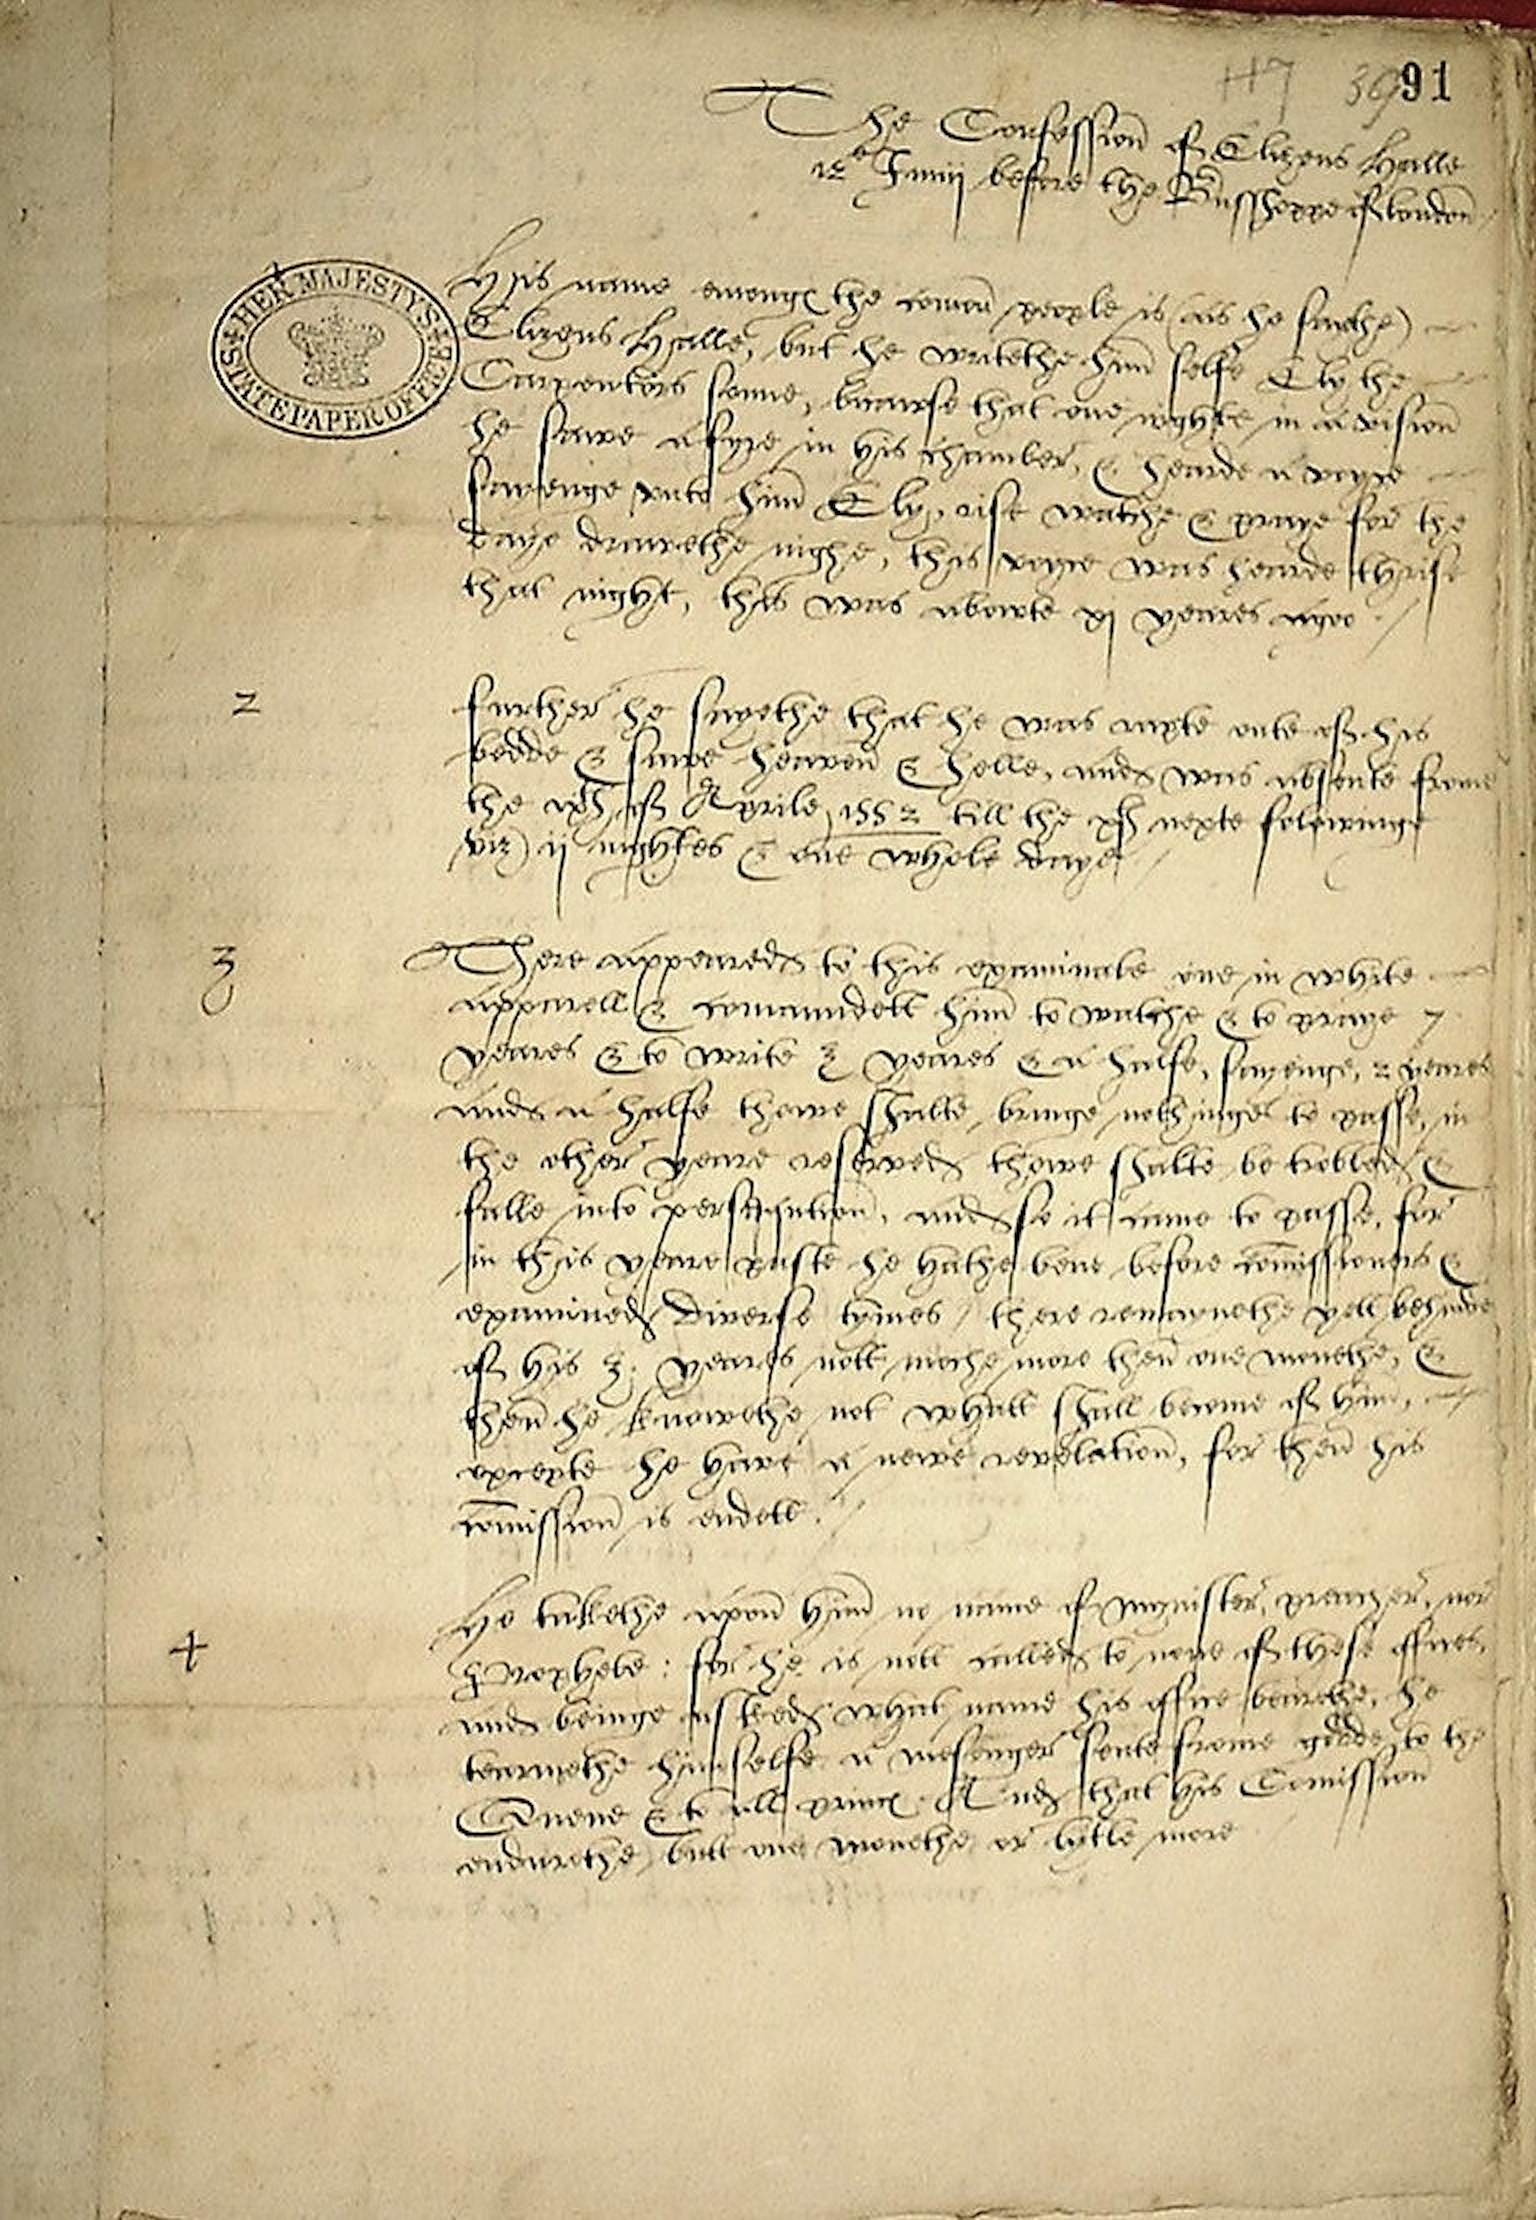 117 39 91
The Confession of Elizeus Halle
12º Junij before the Busshoppe of london
HER MAJESTY'S STATE PAPER OFFICE
His name amonge the comon people is (as he saithe)
Elizeus Halle, but he writethe him selfe Ely the
Carpenters sonne, bicause that one nighte in a vision
he sawe a fyre in his chamber, & hearde a voyce
sayenge unto him Ely, arise watche & praye for the
daye drawethe nighe, this voyce was hearde thrise
that night, this was abowte xj yeares agoo
2
further he sayethe that he was rapte oute of his
bedde & sawe heaven & helle, and was absente frome
the of Aprile 1552 till the xjth nexte folowinge
viz) ij nightes & one whole daye
3
There appeared to this examinate one in white
apparell & comaundett him to watche & to praye 7
yeares & to write 3 yeares & a halfe, sayenge, 2 yeares
and a halfe thowe shalte bringe nothinge to passe, in
the other yeare reserved thowe shalte be trobled &
falle into persequution, and so it came to passe, for
in this yeare paste he hathe bene before comissioners &
examined diverse tymes, there remaynethe yett behinde
of his 3 yeares nott moche more then one monethe, &
then he knowethe not whatt shall become of him,
excepte he have a newe revelation, for then his
comission is endett.
4
He takethe upon him no name of mynister, preacher, nor
prophete: for he is nott called to none of these offices,
and beinge asked what name his office bearethe, he
tearmethe himselfe a mesenger sente frome godde to the
Quene & to all princes And that his Comission
endurethe butt one monethe or lytle more